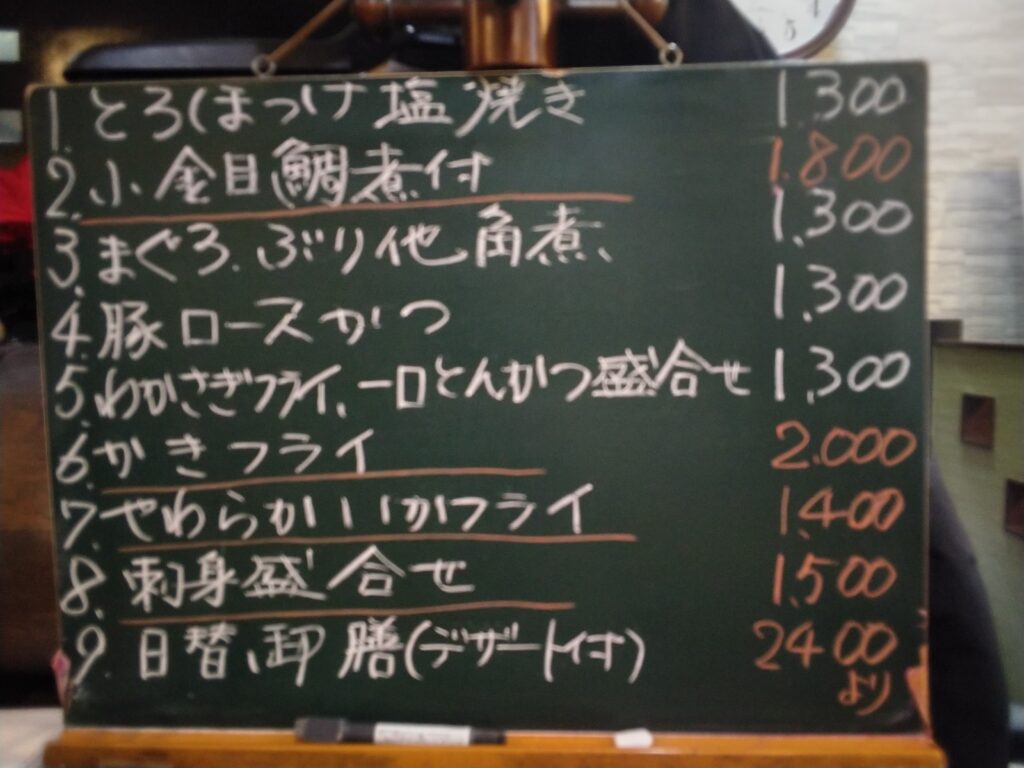 1. とろほっけ塩焼き 1,300
2. 小金目鯛煮付 1,800
3. まぐろ、ぶり他角煮、 1,300
4. 豚ロースかつ 1,300
5. わかさぎフライ、一口とんかつ盛合せ 1,300
6. かきフライ 2,000
7. やわらかいいかフライ 1,400
8. 刺身盛合せ 1,500
9. 日替、御膳(デザート付) 2400
より